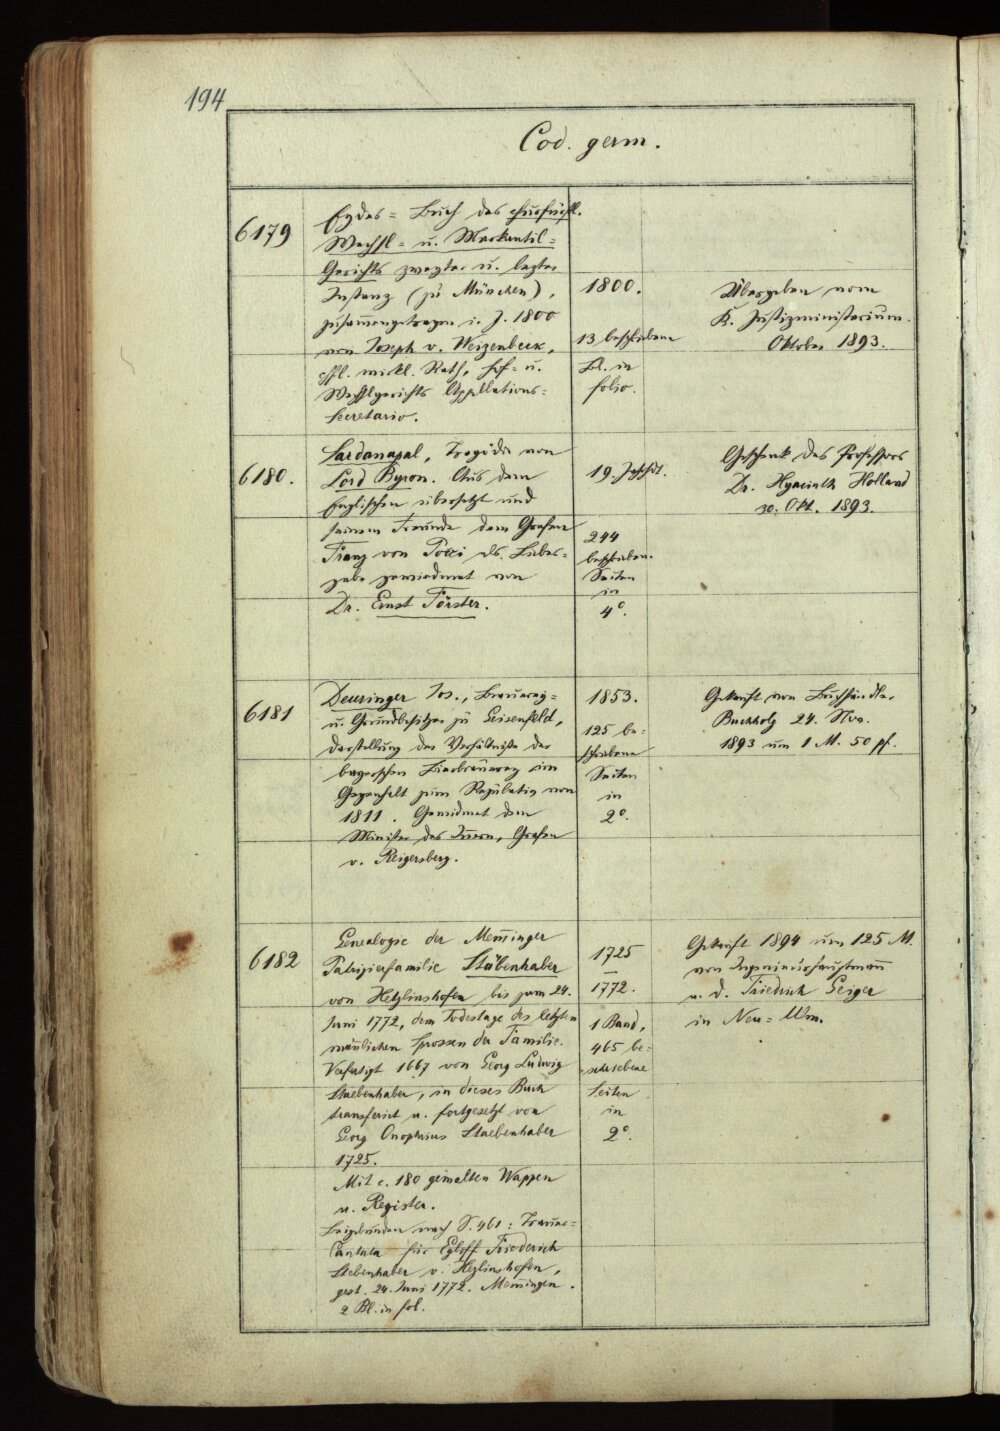 194
Cod. germ.
6179
Eydes = Buch des churfürstl.
Wechsl = u. Merkantil =
Gerichts zweyter u. lezter
Instanz (zu München),
zusammengetragen i. J. 1800
von Joseph v. Weizenbeck,
churfl. wirkl. Rath, Hof = u.
Wechslgerichts Appellations =
Secretario.
1800.
13 beschriebene
Bl. in
folio.
Übergeben vom
K. Justizministerium.
Oktober 1893.
6180.
Sardanapal, Tragödie von
Lord Byron. Aus dem
Englischen übersetzt und
seinem Freunde dem Grafen
Franz von Pocci als Liebes =
gabe gewidmet von
Dr. Ernst Förster.
19. Jahrh.
244
beschrieben.
Seiten
in
4°.
Geschenk des Professors
Dr. Hyacinth Holland
30. Okt. 1893.
6181
Deuringer Jos., Brauerey =
u. Grundbesitzer zu Geisenfeld,
Darstellung der Verhältniße der
bayerschen Bierbrauerey im
Gegenhalt zum Regulativ von
1811. Gewidmet dem
Minister des Innern, Grafen
v. Reigersberg.
1853.
125 be =
schriebene
Seiten
in
2°.
Gekauft von Buchhändler
Buchholz 24. Nov.
1893 um 1 M. 50 pf.
6182
Genealogie der Mem̅inger
Patrizierfamilie Stäbenhaber
von Hetzlinshofen bis zum 24.
Juni 1772, dem Todestage des letzten
männlichen Sprossen der Familie.
Verfertigt 1667 von Georg Ludwig
Staebenhaber, in dieses Buch
transferirt u. fortgesetzt von
Georg Onophrius Staebenhaber
1725.
Mit c. 180 gemalten Wappen
u. Register.
Beigebunden nach S. 461: Trauer =
Cantata für Egloff Friederich
Stebenhaber v. Hezlinshofen,
gest. 24. Juni 1772. Mem̅ingen.
2 Bl. in fol.
1725
–
1772.
1 Band,
465 be =
schriebene
Seiten
in
2°.
Gekauft 1894 um 125 M.
von Ingenieurhauptmann
a. D. Friedrich Geiger
in Neu = Ulm.